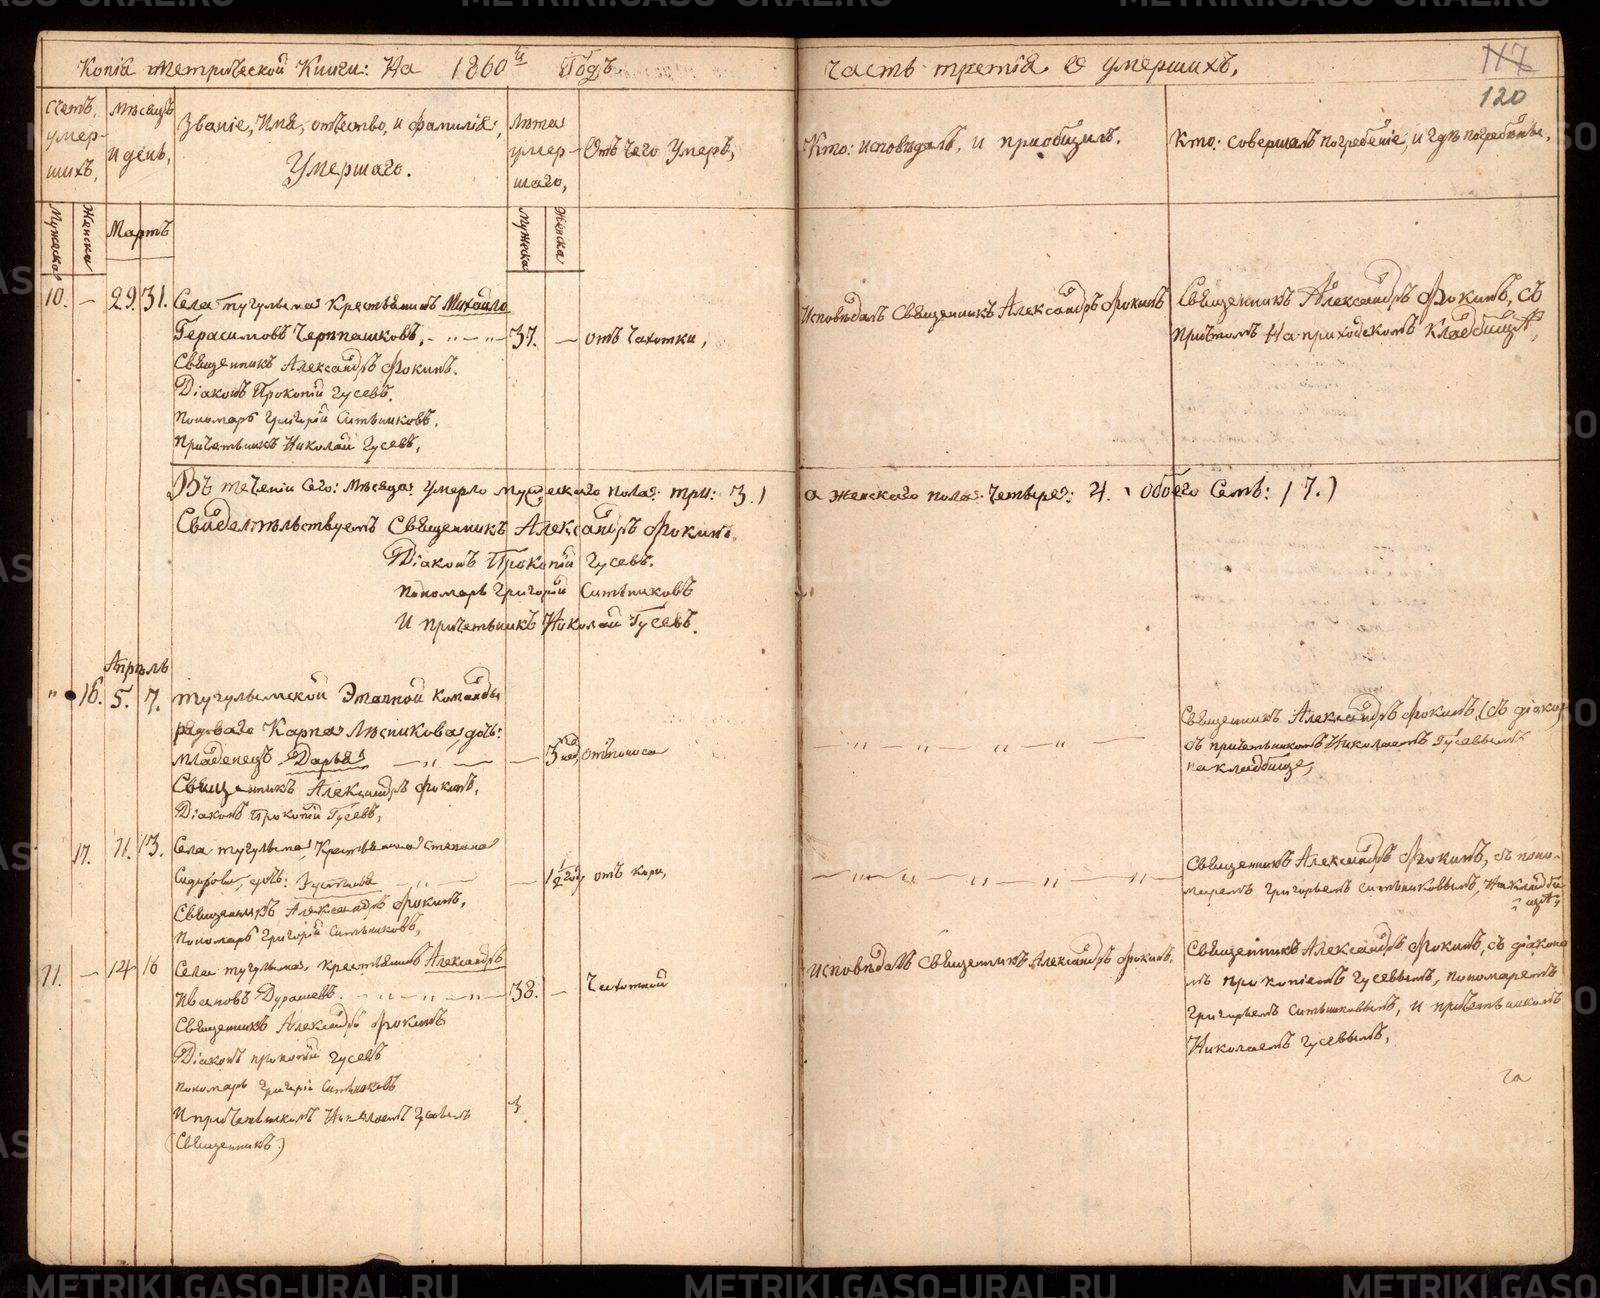 Копія Метрической Книги: На 1860й Годъ.
Часть третія о умершихъ,
117
120
Счетъ умер-
шихъ,
Мѣсяцъ
и день,
Званіе, Имя, отчество, и фамилія,
Умершаго.
Лѣта
умер-
шаго,
Отъ чего Умеръ,
Кто: исповѣдалъ, и приобщилъ.
Кто: совершалъ погребеніе, и гдѣ погребены,
Мужеска
Женска
Мартъ
Мужеска
Женска
10. — 29. 31. Села Тугулыма Крестьянинъ Михайло
Герасимовъ Черпашковъ. 37. — отъ чахотки,
Исповѣдалъ Священникъ Александръ Фокинъ
Священникъ Александръ Фокинъ, съ
Причтомъ На приходскомъ Кладбищѣ,
Священникъ Александръ Фокинъ.
Діаконъ Прокопій Гусевъ.
Пономарь Григорій Ситниковъ.
Причетникъ Николай Гусевъ,
Въ теченіи сего: Мѣсяца: Умерло мужескаго пола: три: 3.) а женскаго пола: четыре: 4. обоего Семь: (7.)
Свидѣтельствуемъ Священникъ Александръ Фокинъ.
Діаконъ Прокопій Гусевъ.
Пономарь Григорій Ситниковъ
И причетникъ Николай Гусевъ.
Апрѣль
" 16. 5. 7. Тугулымской Этапной команды
рядоваго Карпа Лѣсникова дочь:
младенецъ Дарья — 3 нед, отъ поноса
Священникъ Александръ Фокинъ, съ діакон
съ причетникомъ Николаемъ Гусевымъ
на кладбище,
Священникъ Александръ Фокинъ,
Діаконъ Прокопій Гусевъ,
17. 11. 13. Села тугулыма, Крестьянина Степана
Сидорова, дочь: — 1½ году отъ кори,
Священникъ Александръ Фокинъ, съ поно-
маремъ Григорьемъ Ситниковымъ, На кладби
щѣ,
Священникъ Александръ Фокинъ,
Пономарь Григорій Ситниковъ,
11. — 14 16 Села тугулыма, крестьянинъ Александръ
Ивановъ Дурашевъ. 38. — Чахоткой
Исповѣдалъ Священникъ Александръ Фокинъ.
Священникъ Александръ Фокинъ, съ діконо
мъ Прокопіемъ Гусевымъ, пономаремъ
Григорьемъ Ситниковымъ, и причетникомъ
Николаемъ Гусевымъ,
Священникъ Александръ Фокинъ
Діаконъ прокопій Гусевъ
пономарь Григорій Ситниковъ
И причетникомъ Николаемъ Гусевымъ
(Священникъ.)
3.
га
METRIKI.GASO-URAL.RU